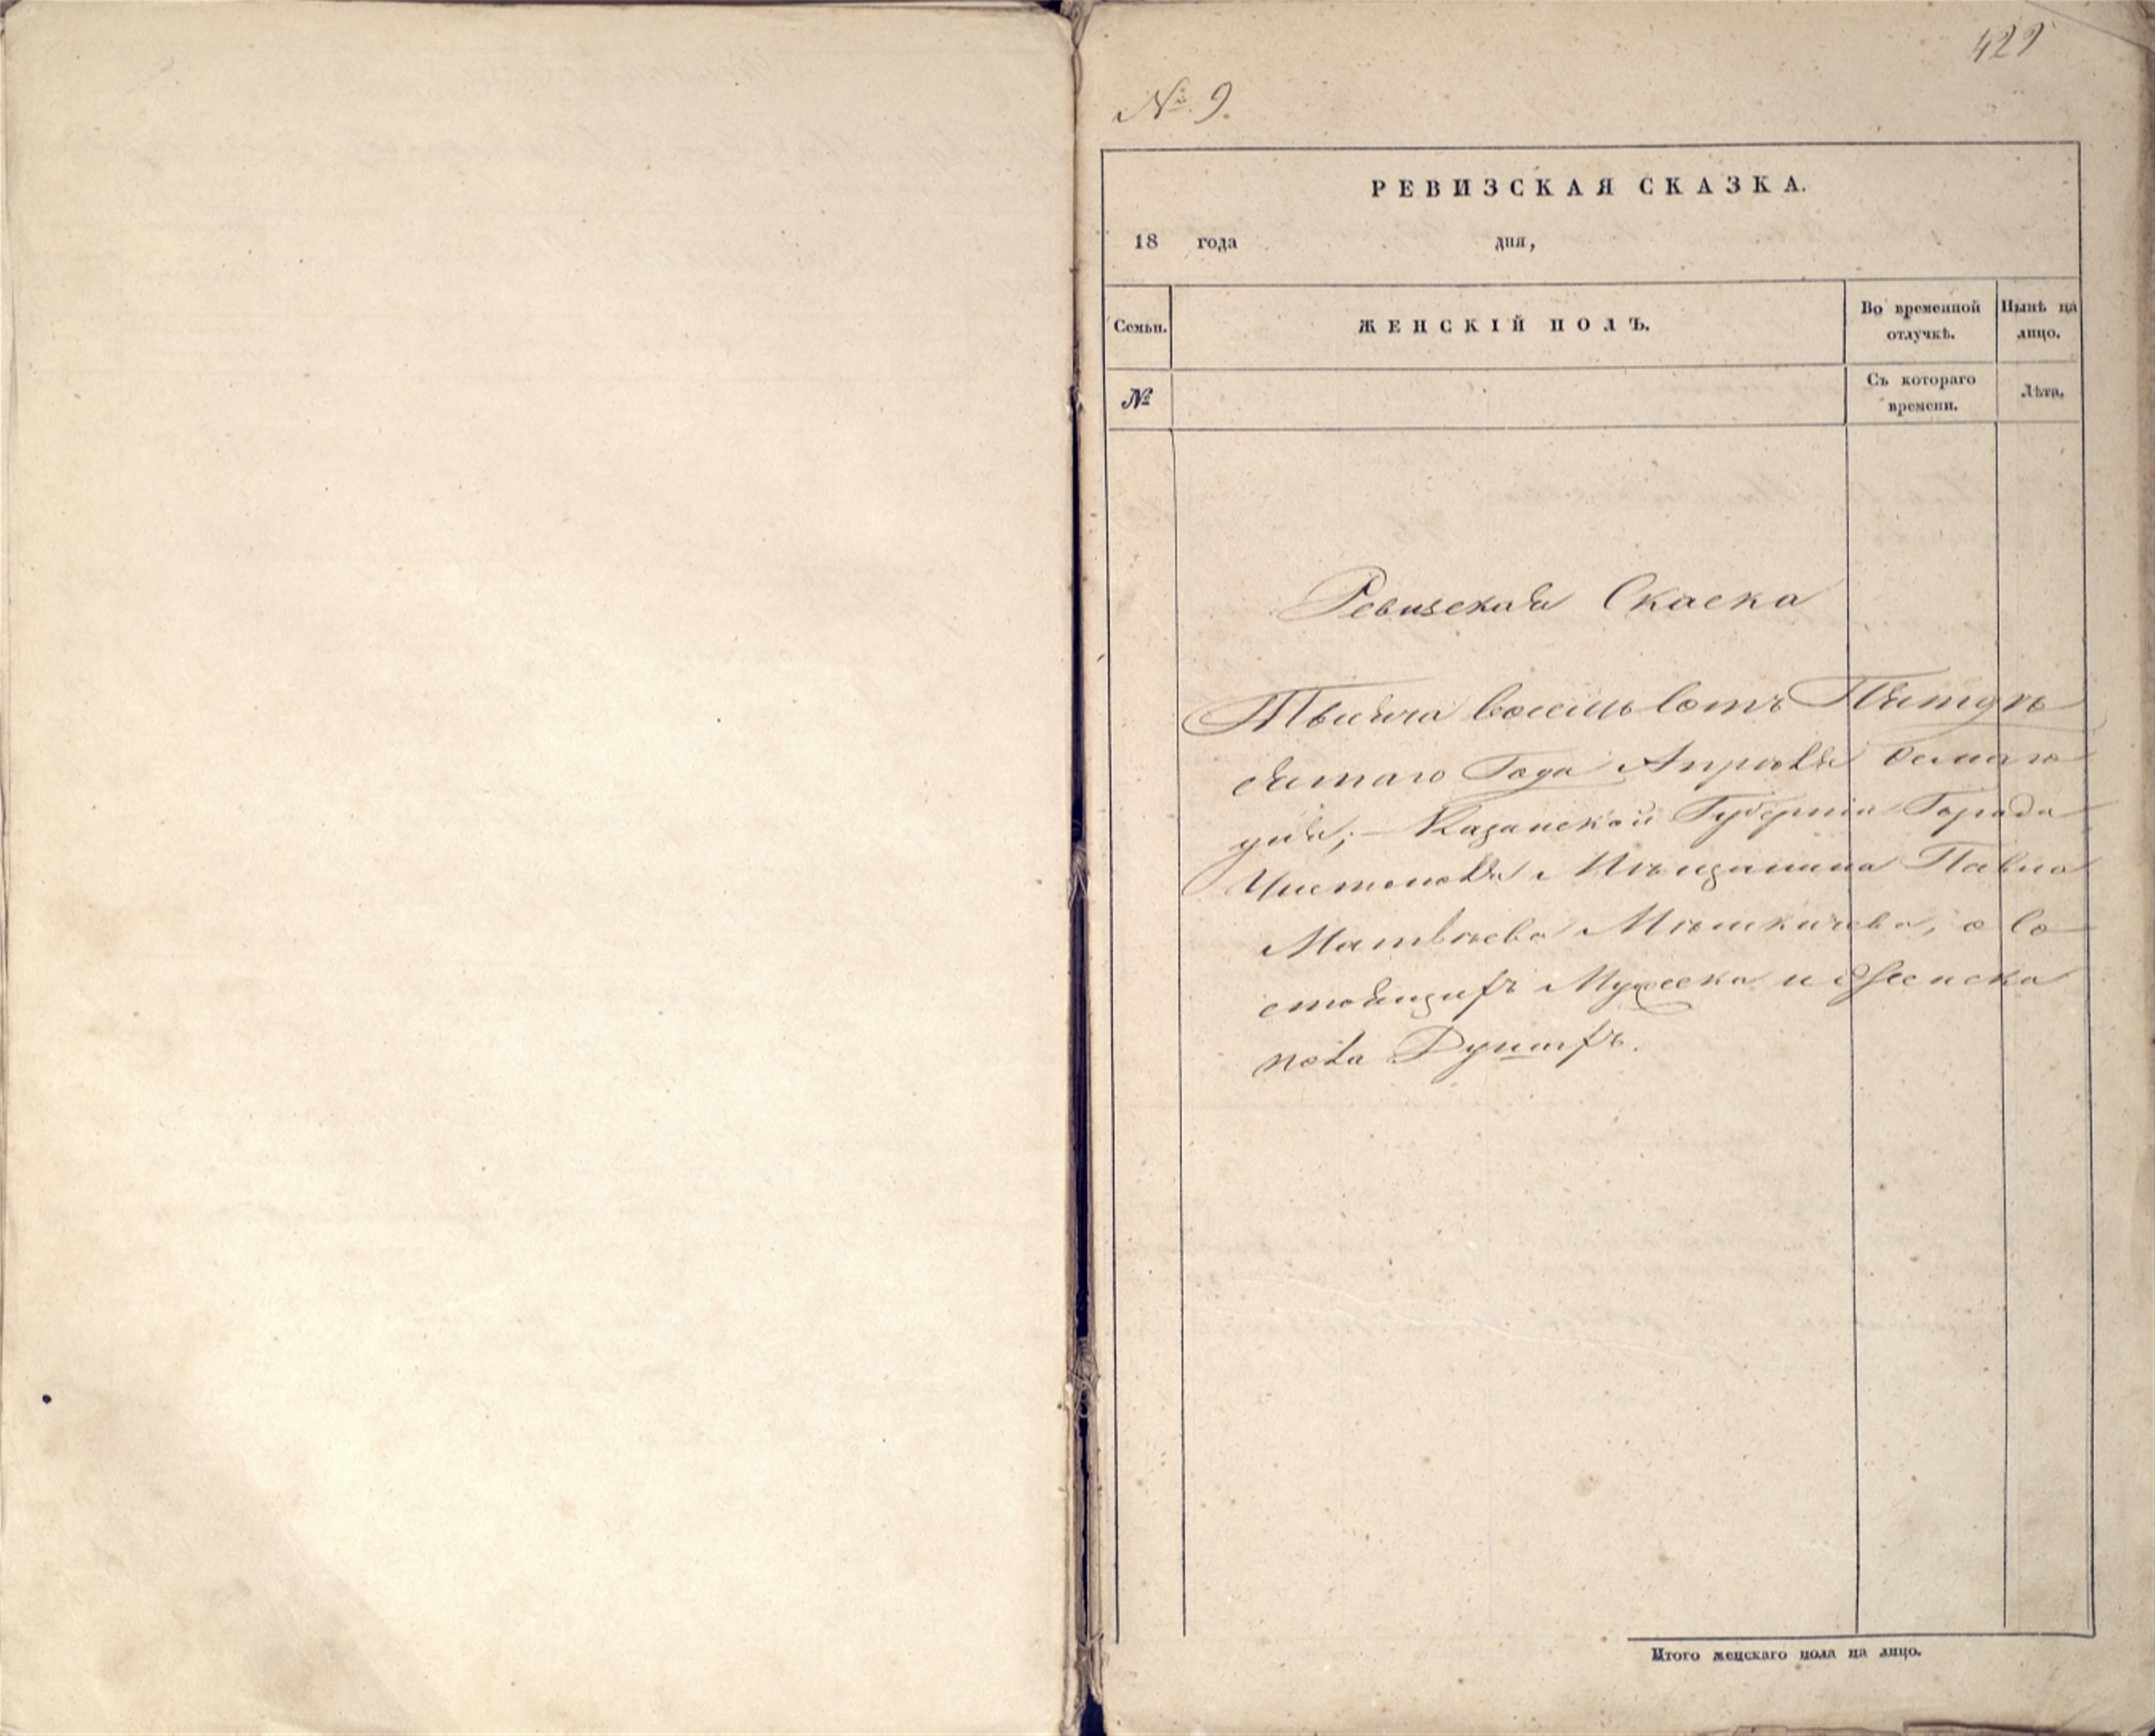 429
№ 9.
РЕВИЗСКАЯ СКАЗКА.
18 года дня,
Семьи. ЖЕНСКІЙ ПОЛЪ. Во временной отлучкѣ. Нынѣ на лицо.
№ Съ котораго времени. Лѣта.
Ревизская Скаска
Тысяча восемь сотъ Пятде
сятаго Года Апреля
дня; Казанской Губерніи Города
Чистополя Мѣщанина Павла
Матвѣева о со
стоящихъ Мужеска и Женска
пола Душахъ.
Итого женскаго пола на лицо.